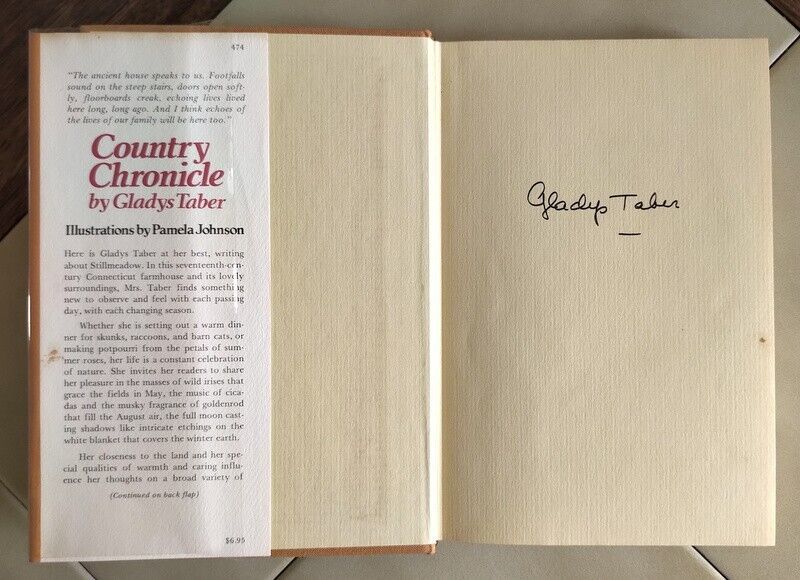 474
"The ancient house speaks to us. Footfalls
sound on the steep stairs, doors open soft-
ly, floorboards creak, echoing lives lived
here long, long ago. And I think echoes of
the lives of our family will be here too."
Country
Chronicle
by Gladys Taber
Illustrations by Pamela Johnson
Here is Gladys Taber at her best, writing
about Stillmeadow. In this seventeenth-cen-
tury Connecticut farmhouse and its lovely
surroundings, Mrs. Taber finds something
new to observe and feel with each passing
day, with each changing season.
Whether she is setting out a warm din-
ner for skunks, raccoons, and barn cats, or
making potpourri from the petals of sum-
mer roses, her life is a constant celebration
of nature. She invites her readers to share
her pleasure in the masses of wild irises that
grace the fields in May, the music of cica-
das and the musky fragrance of goldenrod
that fill the August air, the full moon cast-
ing shadows like intricate etchings on the
white blanket that covers the winter earth.
Her closeness to the land and her spe-
cial qualities of warmth and caring influ-
ence her thoughts on a broad variety of
(Continued on back flap)
$6.95
Gladys Taber